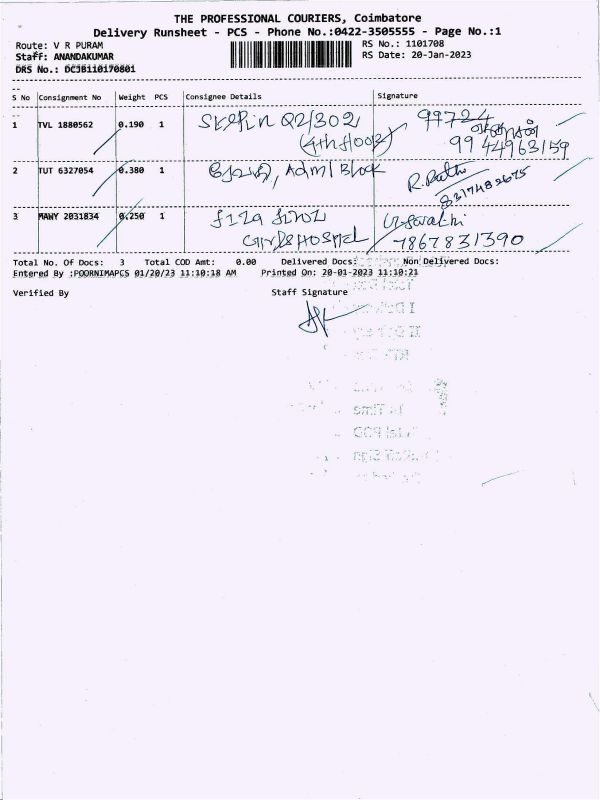 THE PROFESSIONAL COURIERS, Coimbatore
Delivery Runsheet - PCS - Phone No.:0422-3505555 - Page No.:1
Route: V R PURAM
RS No.: 1101708
Staff: ANANDAKUMAR
RS Date: 20-Jan-2023
DRS No.: DCJB110170801
S No Consignment No Weight PCS Consignee Details Signature
1 TVL 1880562 0.190 1 Q2/302 99724
(4th floor) 9944963159
2 TUT 6327054 0.380 1 , Adml Block R.
8317482675
3 MAWY 2031834 0.250 1
7867831390
Total No. Of Docs: 3 Total COD Amt: 0.00 Delivered Docs: Non Delivered Docs:
Entered By :POORNIMAPCS 01/20/23 11:10:18 AM Printed On: 20-01-2023 11:10:21
Verified By Staff Signature